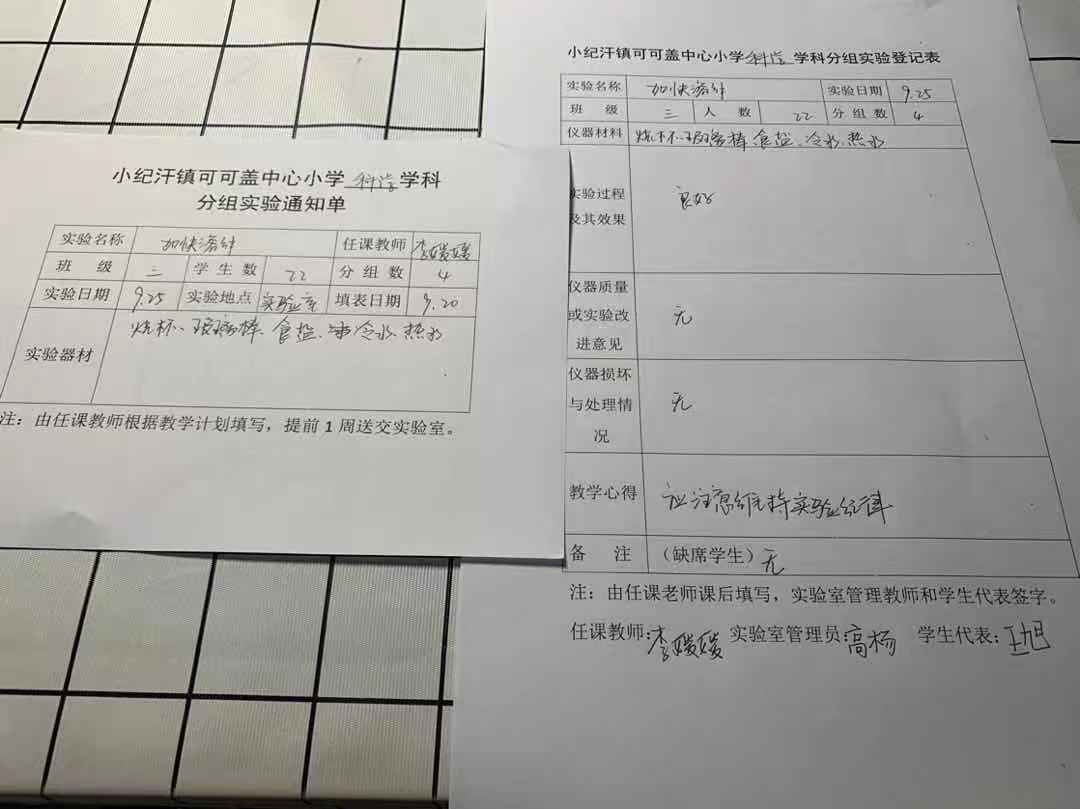 小纪汗镇可可盖中心小学科学学科
分组实验通知单
实验名称 加快溶解 任课教师 李媛媛
班级 三 学生数 22 分组数 4
实验日期 9.25 实验地点 实验室 填表日期 9.20
实验器材 烧杯、玻璃棒、食盐、冷水、热水
注：由任课教师根据教学计划填写，提前1周送交实验室。
小纪汗镇可可盖中心小学科学学科分组实验登记表
实验名称 加快溶解 实验日期 9.25
班级 三 人数 22 分组数 4
仪器材料 烧杯、玻璃棒、食盐、冷水、热水
实验过程
及其效果 良好
仪器质量
或实验改 无
进意见
仪器损坏
与处理情 无
况
教学心得 应注意维持实验纪律
备注 （缺席学生）无
注：由任课老师课后填写，实验室管理教师和学生代表签字。
任课教师：李媛媛 实验室管理员 高杨 学生代表：王旭